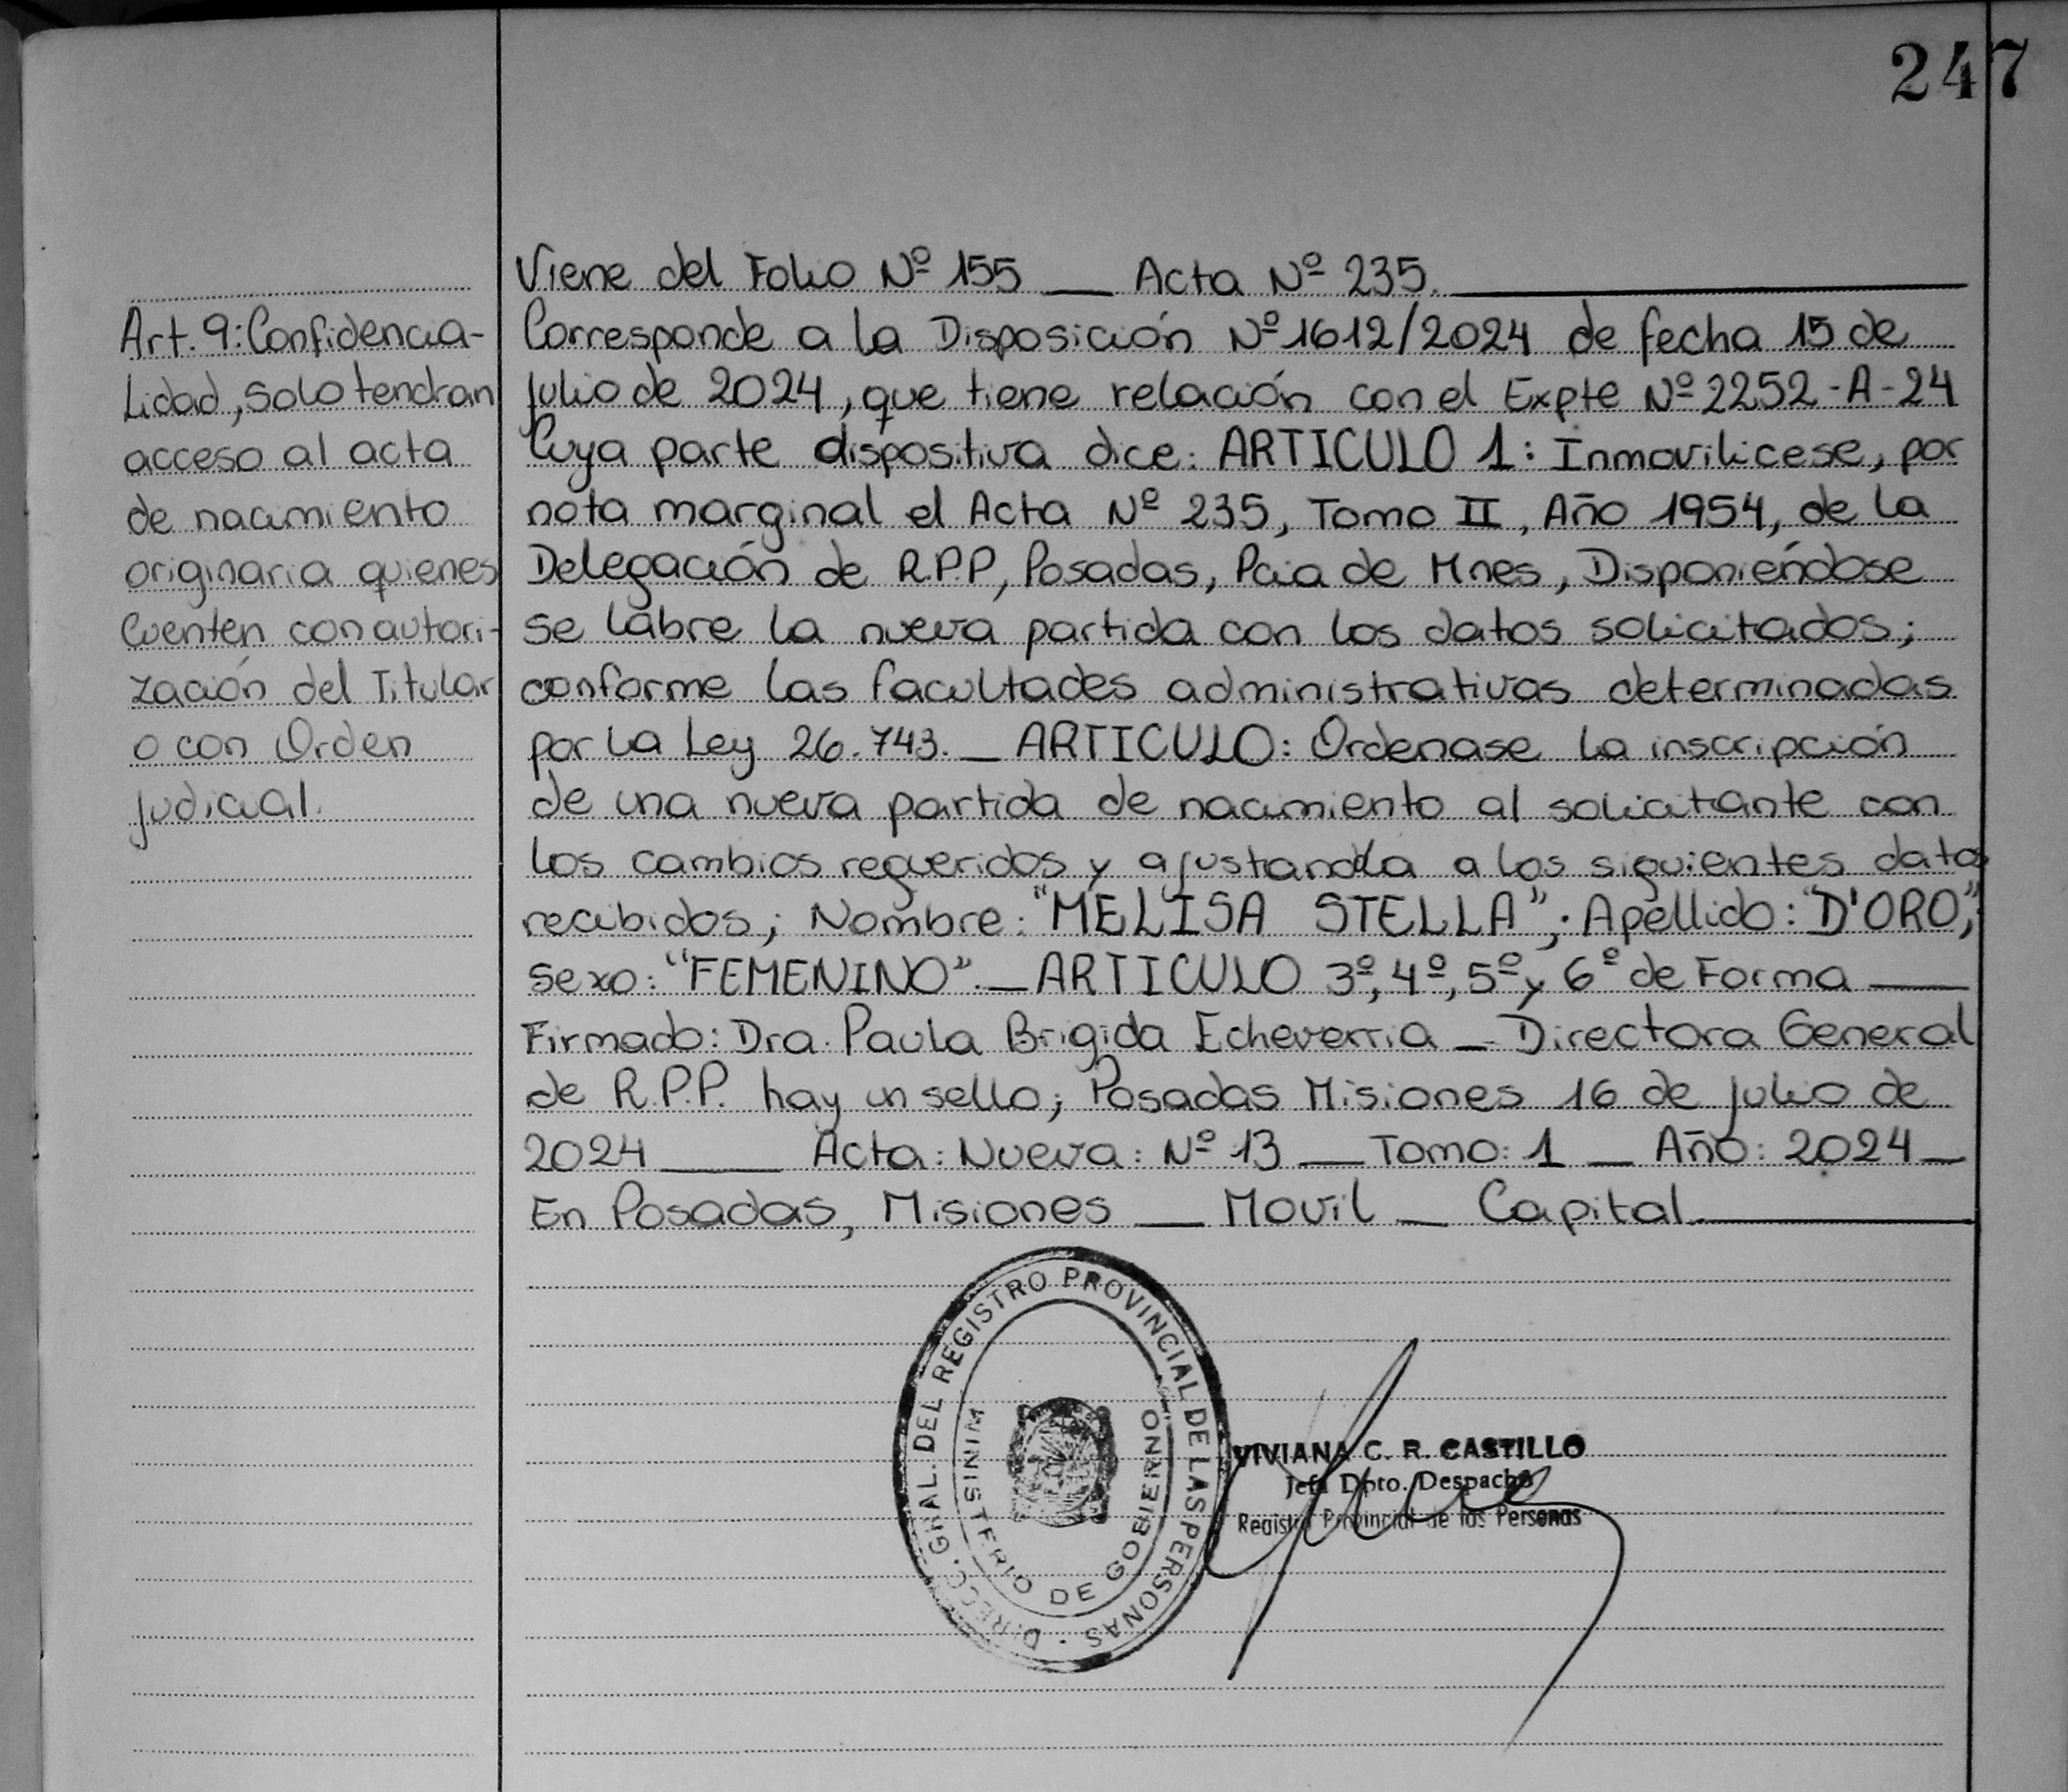 247
Viene del Folio Nº 155 __ Acta Nº 235.
Art. 9: Confidencia-
lidad, solo tendran
acceso al acta
de nacimiento
originaria quienes
Cuenten con autori-
zación del Titular
o con Orden
judicial.
Corresponde a la Disposición Nº 1612/2024 de fecha 15 de
julio de 2024, que tiene relación con el Expte Nº 2252-A-24
Cuya parte dispositiva dice: ARTICULO 1: Inmovilicese, por
nota marginal el Acta Nº 235, Tomo II, Año 1954, de la
Delegación de R.P.P, Posadas, Pcia de Mnes, Disponiéndose
se labre la nueva partida con los datos solicitados;
conforme las facultades administrativas determinadas
por la Ley 26.743. _ ARTICULO: Ordenase la inscripción
de una nueva partida de nacimiento al solicitante con
los cambios requeridos y ajustandla a los siguientes datos
recibidos; Nombre: "MELISA STELLA"; Apellido: "D'ORO",
sexo: "FEMENINO". _ ARTICULO 3º, 4º, 5º y 6º de Forma __
Firmado: Dra. Paula Brigida Echeverria _ Directora General
de R.P.P. hay un sello; Posadas Misiones 16 de julio de
2024 ___ Acta: Nueva: Nº 13 __ Tomo: 1 _ Año: 2024 _
En Posadas, Misiones __ Movil _ Capital
DIRECC. GRAL. DEL REGISTRO PROVINCIAL DE LAS PERSONAS
MINISTERIO DE GOBIERNO
VIVIANA C. R. CASTILLO
Jefa Dpto. Despacho
Registro Provincial de las Personas